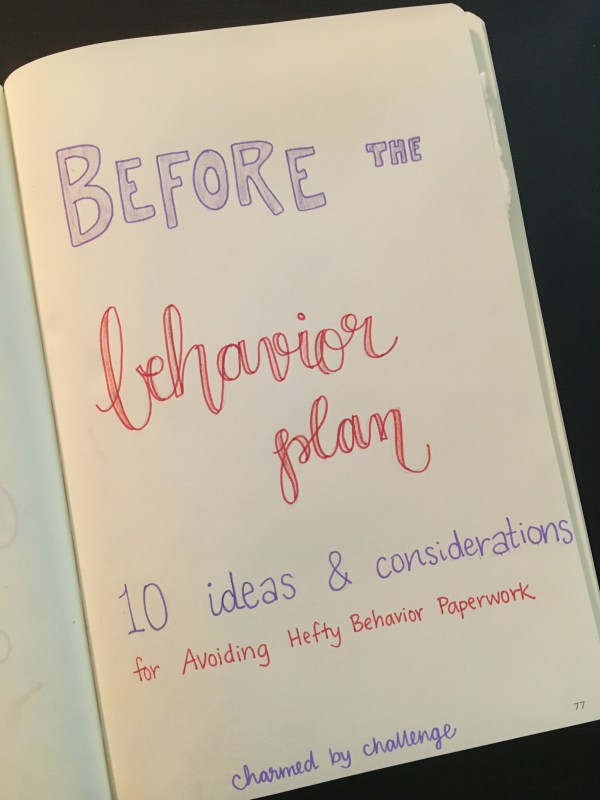 BEFORE THE
behavior
plan
10 ideas & considerations
for Avoiding Hefty Behavior Paperwork
77
charmed by challenge